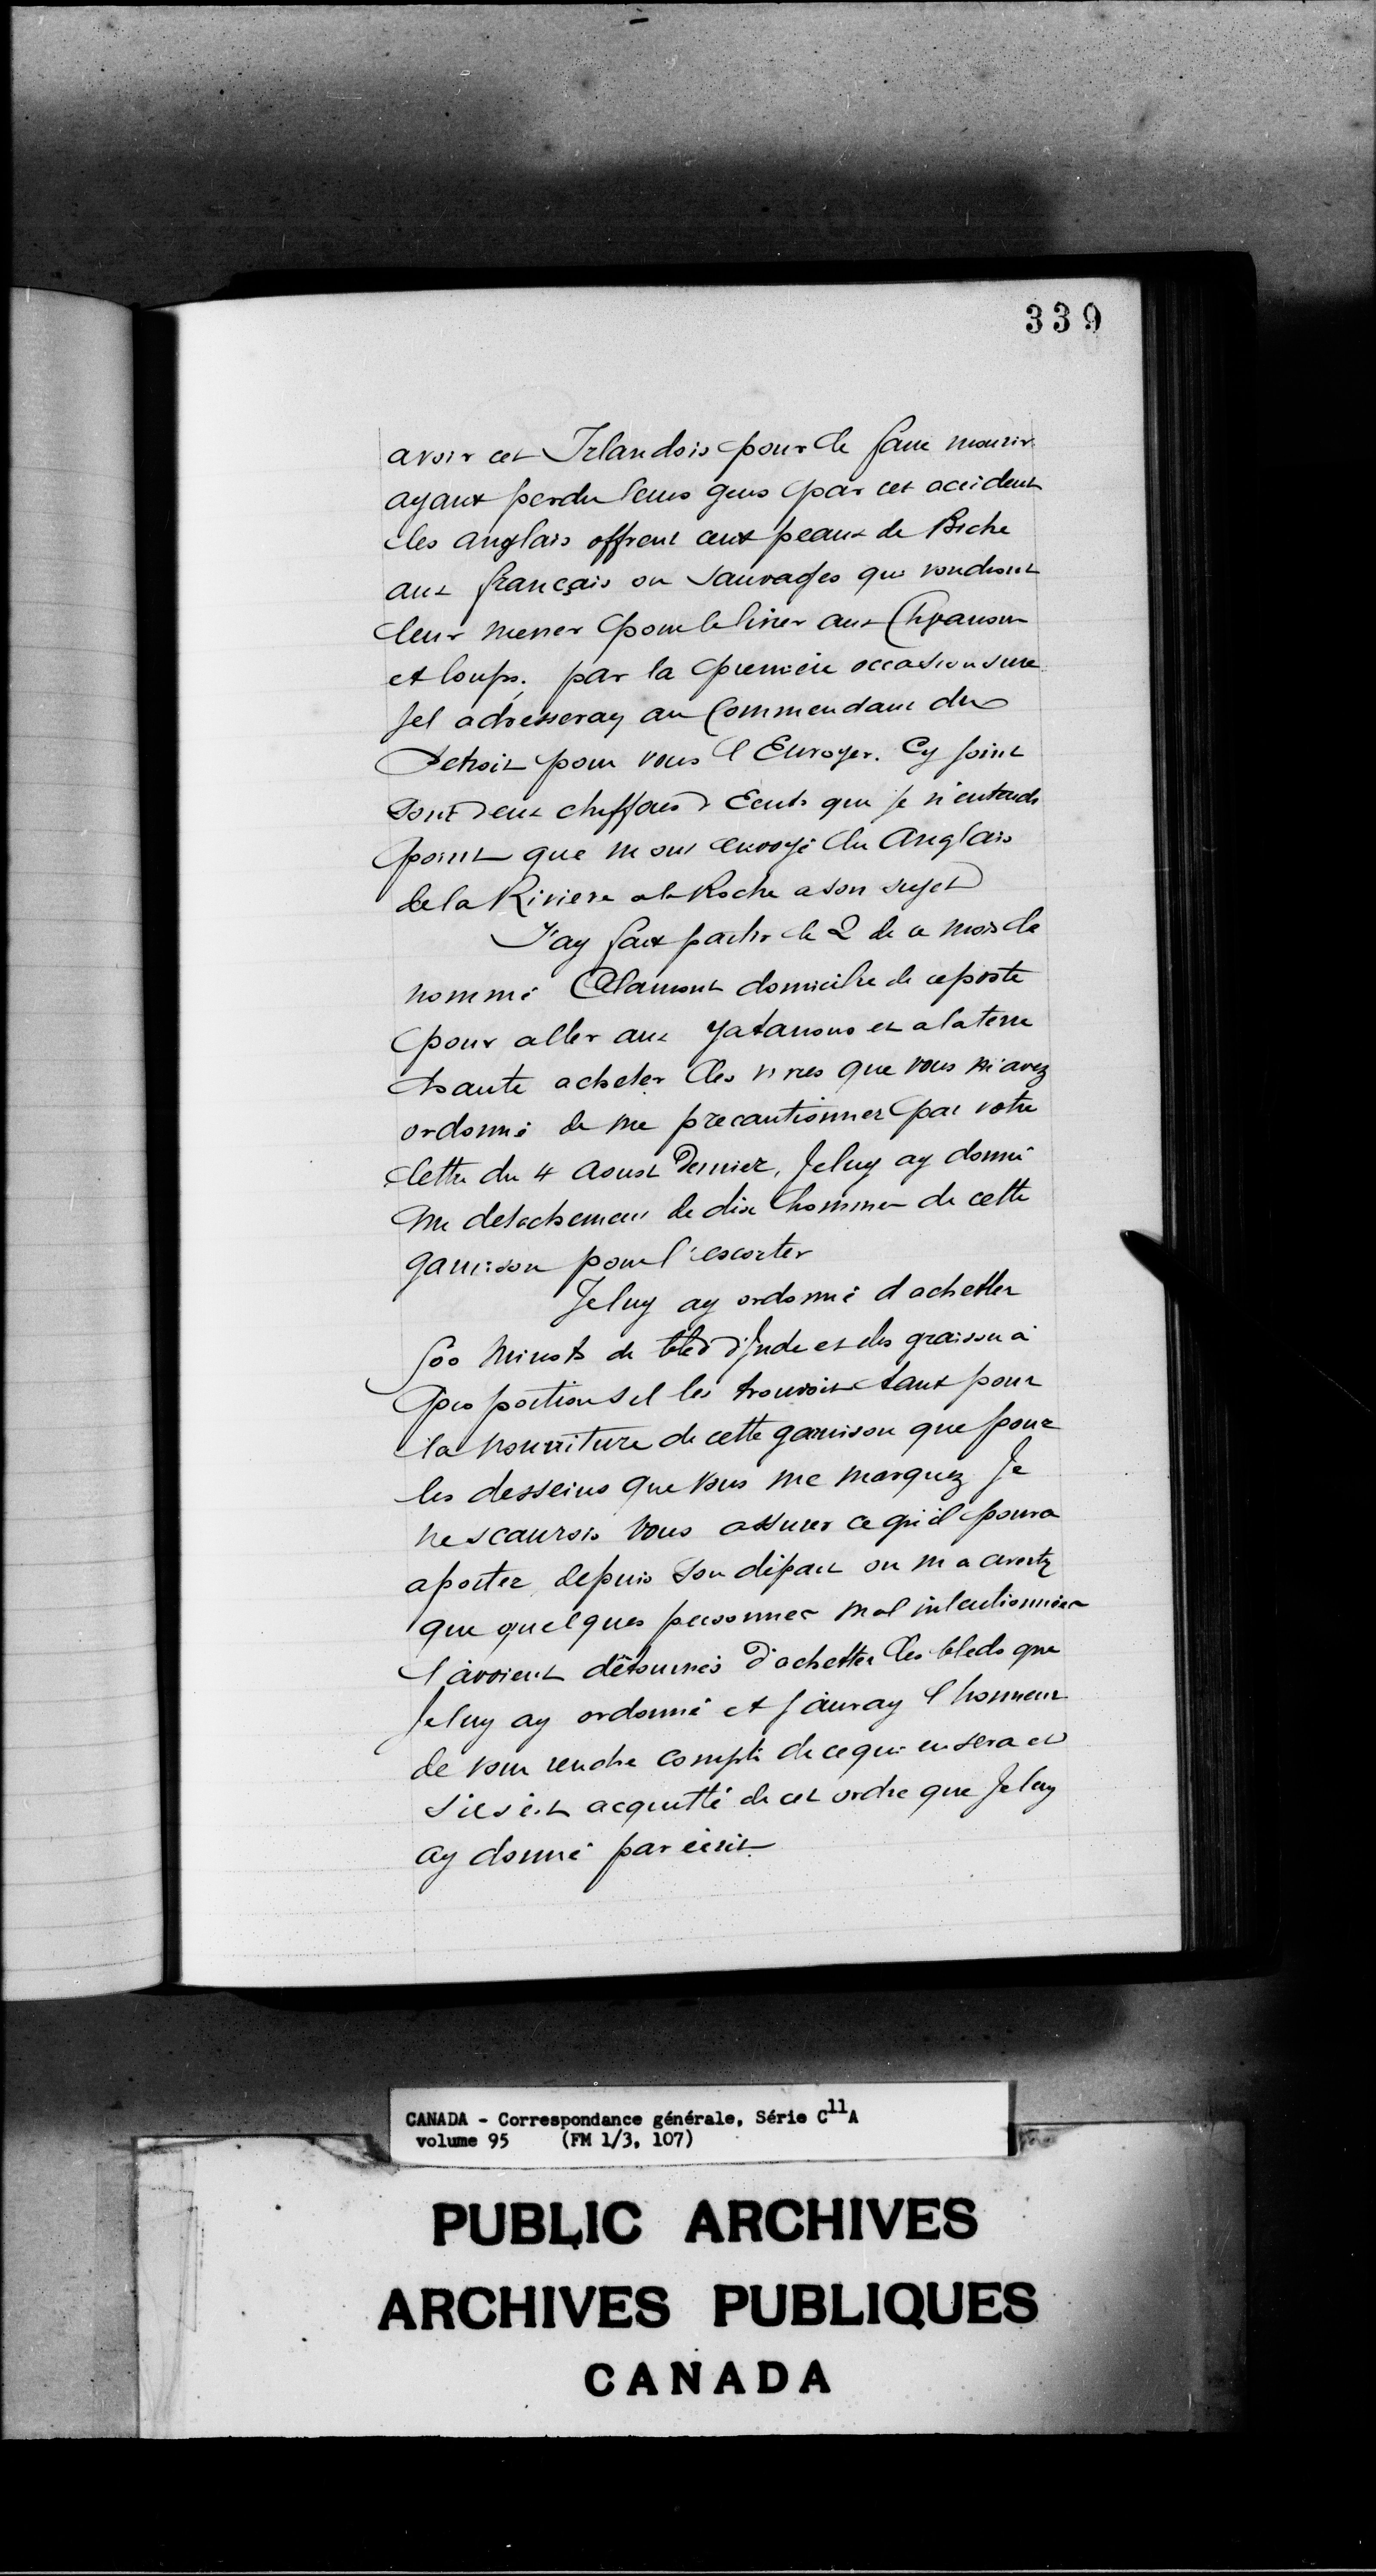 339
avoir cet Irlandois pour le faire mourir
ayant perdu leurs gens par cet accident
les anglais offrent cent peaux de Biche
aux français ou Sauvages qui voudront
leur mener pour le livrer aux Chaanons
et loups, par la premiere occasion sure
Jel adresseray au Commendant du
Detroit pour vous l Envoyer. Cy joint
Sont deux chiffons d Ecrits que je n'entends
point que m ont envoyé les Anglais
de la Riviere a la Roche a son sujet
J'ay fait partir le 2 de ce mois le
nommé domicilié de ce poste
pour aller aux yatanons et a la terre
haute acheter les vivres que vous m'avez
ordonné de me precautionner par votre
lettre du 4 Aoust Dernier, Je luy ay donné
un detachement de dix hommes de cette
garnison pour l'escorter
Je luy ay ordonné d achetter
500 Minots de bled d'Inde et des graisses à
proportion s il les trouvoit tant pour
la nourriture de cette garnison que pour
les desseins que vous me marquez Je
ne scaurois vous assurer ce qu'il poura
aporter, depuis son départ on m a averty
que quelques personnes mal intentionnées
l'avoient détournés d'achetter les bleds que
Je luy ay ordonné et j'auray l honneur
de vous rendre compte de ce qui en sera et
s'il s'est acquitté de cet ordre que Je luy
ay donné par écrit
CANADA - Correspondance générale, Série C11A
volume 95 (FM 1/3, 107)
PUBLIC ARCHIVES
ARCHIVES PUBLIQUES
CANADA